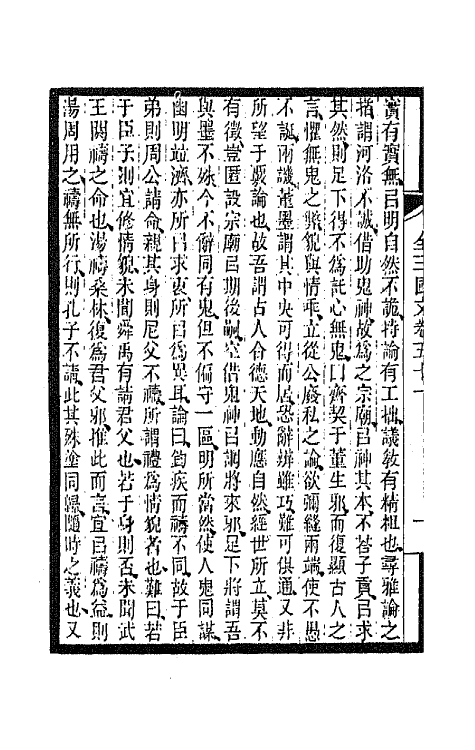 全三國文卷五十
實有實無㠯明自然不詭持論有工拙議教有精粗也尋雅論之
指謂河洛不誠借助鬼神故爲之宗廟㠯神其本不荅子貢㠯求
其然則足下得不爲託心無鬼□齊契于董生邪而復顯古人之
言懼無鬼之獘貌與情乖立從公廢私之論欲彌縫兩端使不愚
不誕兩譏董墨謂其中央可得而居恐辭辨雖巧難可俱通又非
所望于覈論也故吾謂古人合德天地動應自然經世所立莫不
有徵豈匿設宗廟㠯期後嗣空借鬼神㠯誷將來邪足下將謂吾
與墨不殊今不辭同有鬼但不偏守一區明所當然使人鬼同謀
幽明竝濟亦所㠯求衷所㠯爲異耳論曰鈞疾而禱不同故于臣
弟則周公請命親其身則尼父不禱所謂禮爲情貌者也難曰若
于臣子則宜修情貌未聞舜禹有請君父也若于身則否未聞武
王閼禱之命也湯禱桑林復爲君父邪推此而言宜㠯禱爲益則
湯周用之禱無所行則孔子不請此其殊塗同歸隨時之義也又